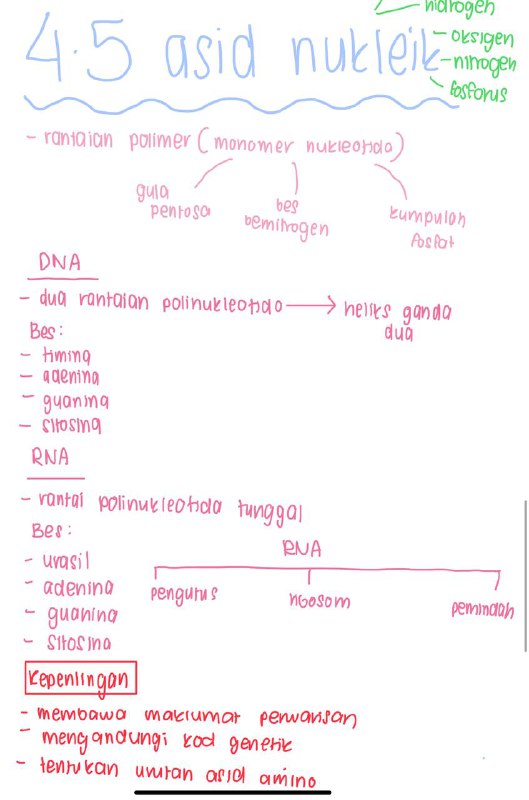 hidrogen
4.5 asid nukleik
- oksigen
- nitrogen
fosforus
- rantaian polimer (monomer nukleotida)
gula pentosa
bes bernitrogen
kumpulan fosfat
DNA
- dua rantaian polinukleotida → heliks ganda dua
Bes:
- timina
- adenina
- guanina
- sitosina
RNA
- rantai polinukleotida tunggal
Bes:
- urasil
- adenina
- guanina
- sitosina
RNA
pengutus
ribosom
pemindah
Kepentingan
- membawa maklumat perwarisan
- mengandungi kod genetik
- tentukan urutan asid amino